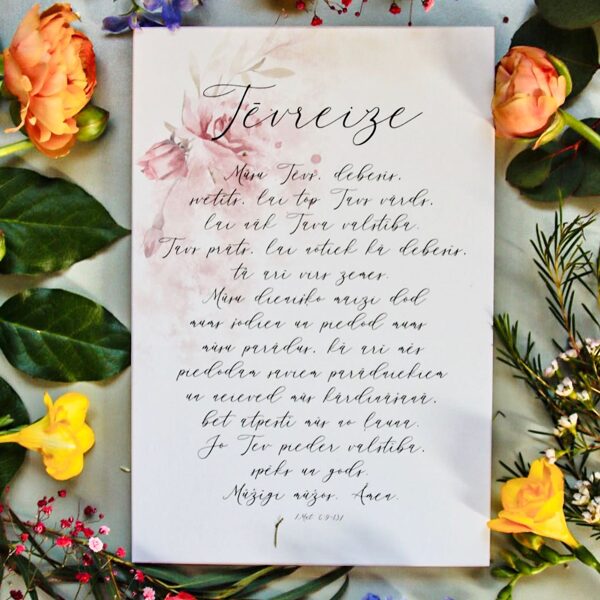 Tēvreize
Mūsu Tēvs, debesīs,
svētīts, lai top Tavs vārds,
lai nāk Tava valstība.
Tavs prāts, lai notiek kā debesīs,
tā arī virs zemes.
Mūsu dienišķo maizi dod
mums šodien un piedod mums
mūsu parādus, kā arī mēs
piedodam saviem parādniekiem
un neieved mūs kārdināšanā,
bet atpestī mūs no ļauna.
Jo Tev pieder valstība,
spēks un gods.
Mūžīgi mūžos. Āmen.